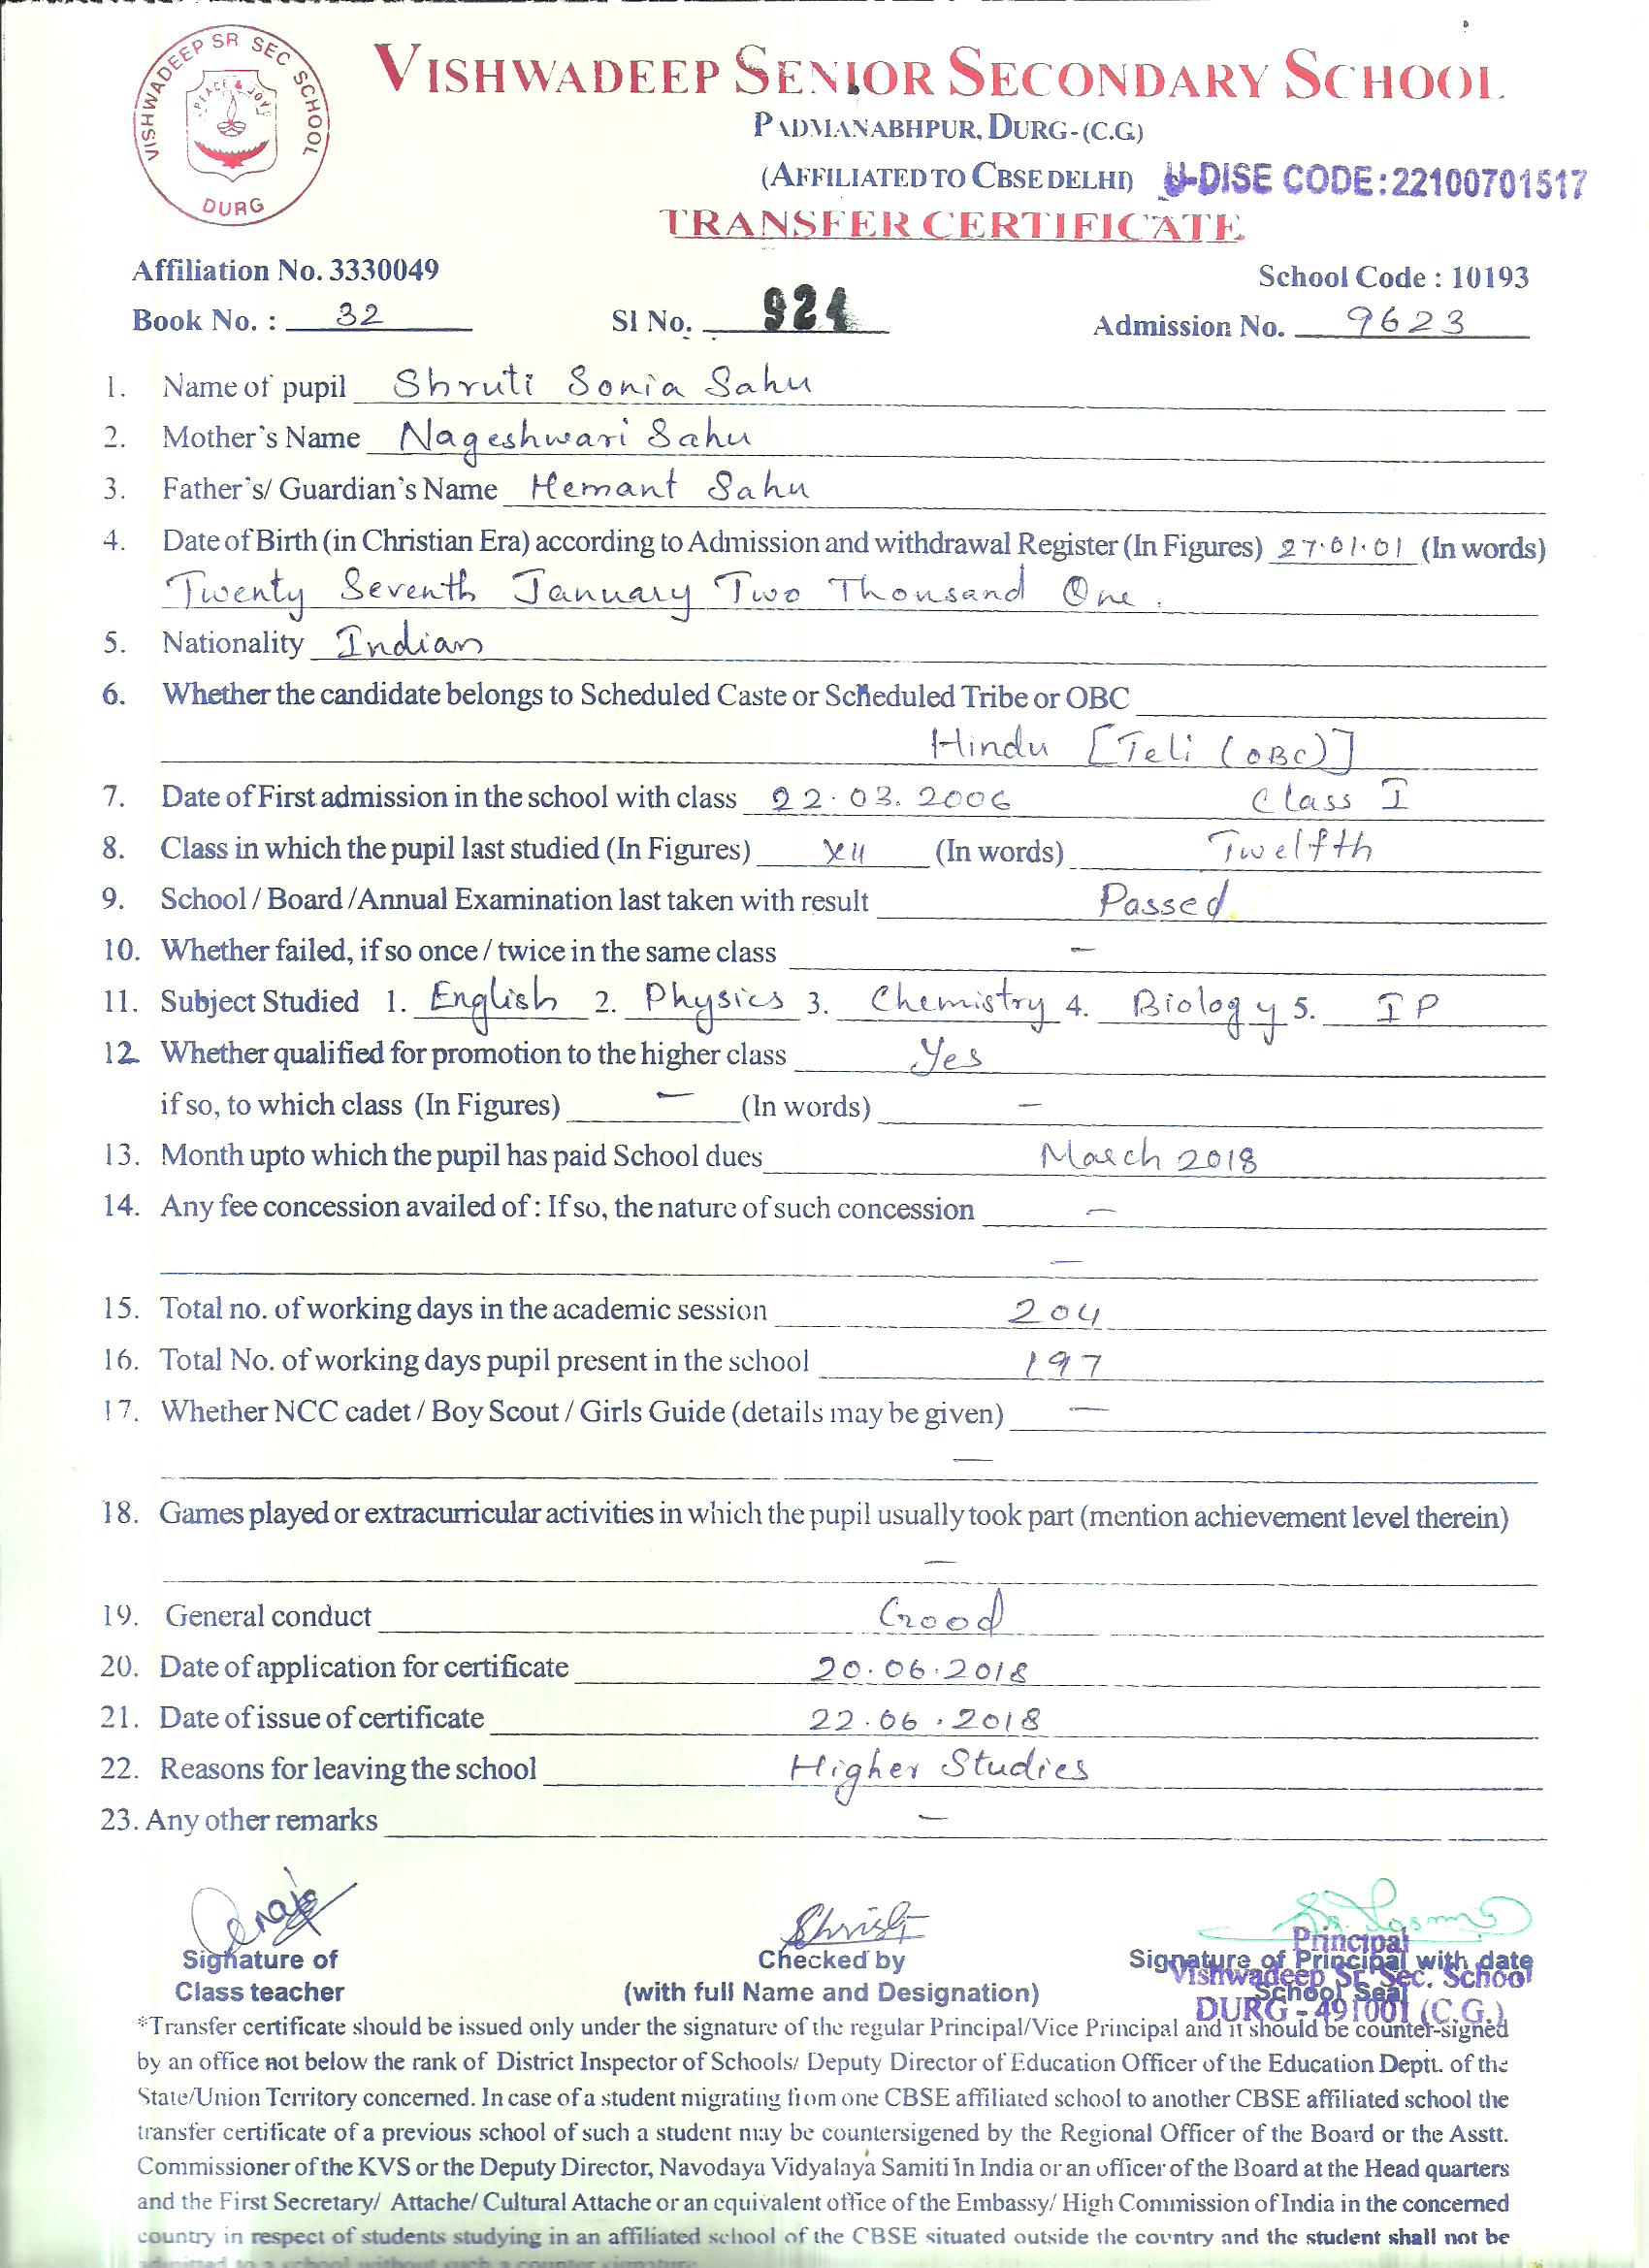 VISHWADEEP SR SEC SCHOOL
PEACE & JOY
DURG
VISHWADEEP SENIOR SECONDARY SCHOOL
PADMANABHPUR, DURG-(C.G)
(AFFILIATED TO CBSE DELHI) U-DISE CODE:22100701517
TRANSFER CERTIFICATE
Affiliation No. 3330049 School Code : 10193
Book No. : 32 Sl No. 924 Admission No. 9623
1. Name of pupil Shruti Sonia Sahu
2. Mother's Name Nageshwari Sahu
3. Father's/ Guardian's Name Hemant Sahu
4. Date of Birth (in Christian Era) according to Admission and withdrawal Register (In Figures) 27.01.01 (In words)
Twenty Seventh January Two Thousand One.
5. Nationality Indian
6. Whether the candidate belongs to Scheduled Caste or Scheduled Tribe or OBC
Hindu [Teli (OBC)]
7. Date of First admission in the school with class 22.03.2006 Class I
8. Class in which the pupil last studied (In Figures) XII (In words) Twelfth
9. School / Board /Annual Examination last taken with result Passed
10. Whether failed, if so once / twice in the same class –
11. Subject Studied 1. English 2. Physics 3. Chemistry 4. Biology 5. IP
12. Whether qualified for promotion to the higher class Yes
if so, to which class (In Figures) – (In words) –
13. Month upto which the pupil has paid School dues March 2018
14. Any fee concession availed of : If so, the nature of such concession –
–
15. Total no. of working days in the academic session 204
16. Total No. of working days pupil present in the school 197
17. Whether NCC cadet / Boy Scout / Girls Guide (details may be given) –
–
18. Games played or extracurricular activities in which the pupil usually took part (mention achievement level therein)
–
19. General conduct Good
20. Date of application for certificate 20.06.2018
21. Date of issue of certificate 22.06.2018
22. Reasons for leaving the school Higher Studies
23. Any other remarks –
Principal
Signature of Checked by Signature of Principal with date
Vishwadeep Sr. Sec. School
Class teacher (with full Name and Designation) School Seal
DURG - 491001 (C.G.)
*Transfer certificate should be issued only under the signature of the regular Principal/Vice Principal and it should be counter-signed
by an office not below the rank of District Inspector of Schools/ Deputy Director of Education Officer of the Education Deptt. of the
State/Union Territory concerned. In case of a student migrating from one CBSE affiliated school to another CBSE affiliated school the
transfer certificate of a previous school of such a student may be countersigened by the Regional Officer of the Board or the Asstt.
Commissioner of the KVS or the Deputy Director, Navodaya Vidyalaya Samiti in India or an officer of the Board at the Head quarters
and the First Secretary/ Attache/ Cultural Attache or an equivalent office of the Embassy/ High Commission of India in the concerned
country in respect of students studying in an affiliated school of the CBSE situated outside the country and the student shall not be
admitted to a school without such a counter signature